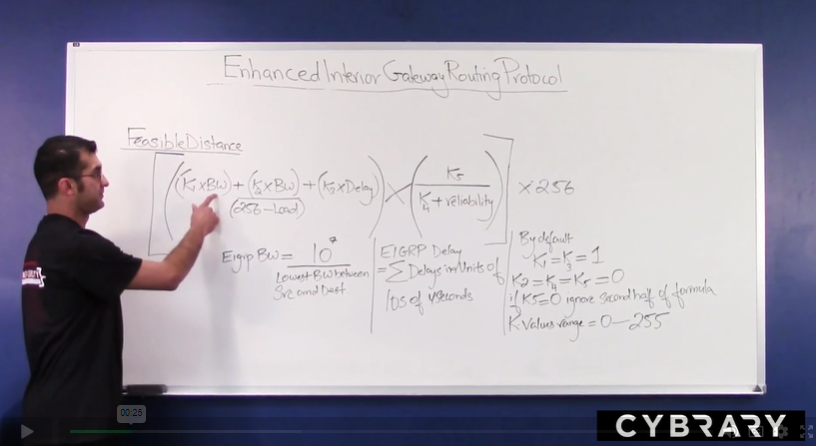 Enhanced Interior Gateway Routing Protocol
Feasible Distance
[((K1 x BW) + (K2 x BW) / (256 - Load) + (K3 x Delay)) X (K5 / K4 + reliability)] x 256
Eigrp BW = 10^7 / Lowest BW between Src and Dest
EIGRP Delay
= ∑ Delays in Units of
10s of μseconds
By default
K1 = K3 = 1
K2 = K4 = K5 = 0
if K5=0 ignore second half of formula
K values range = 0 - 255
00:25
CYBRARY